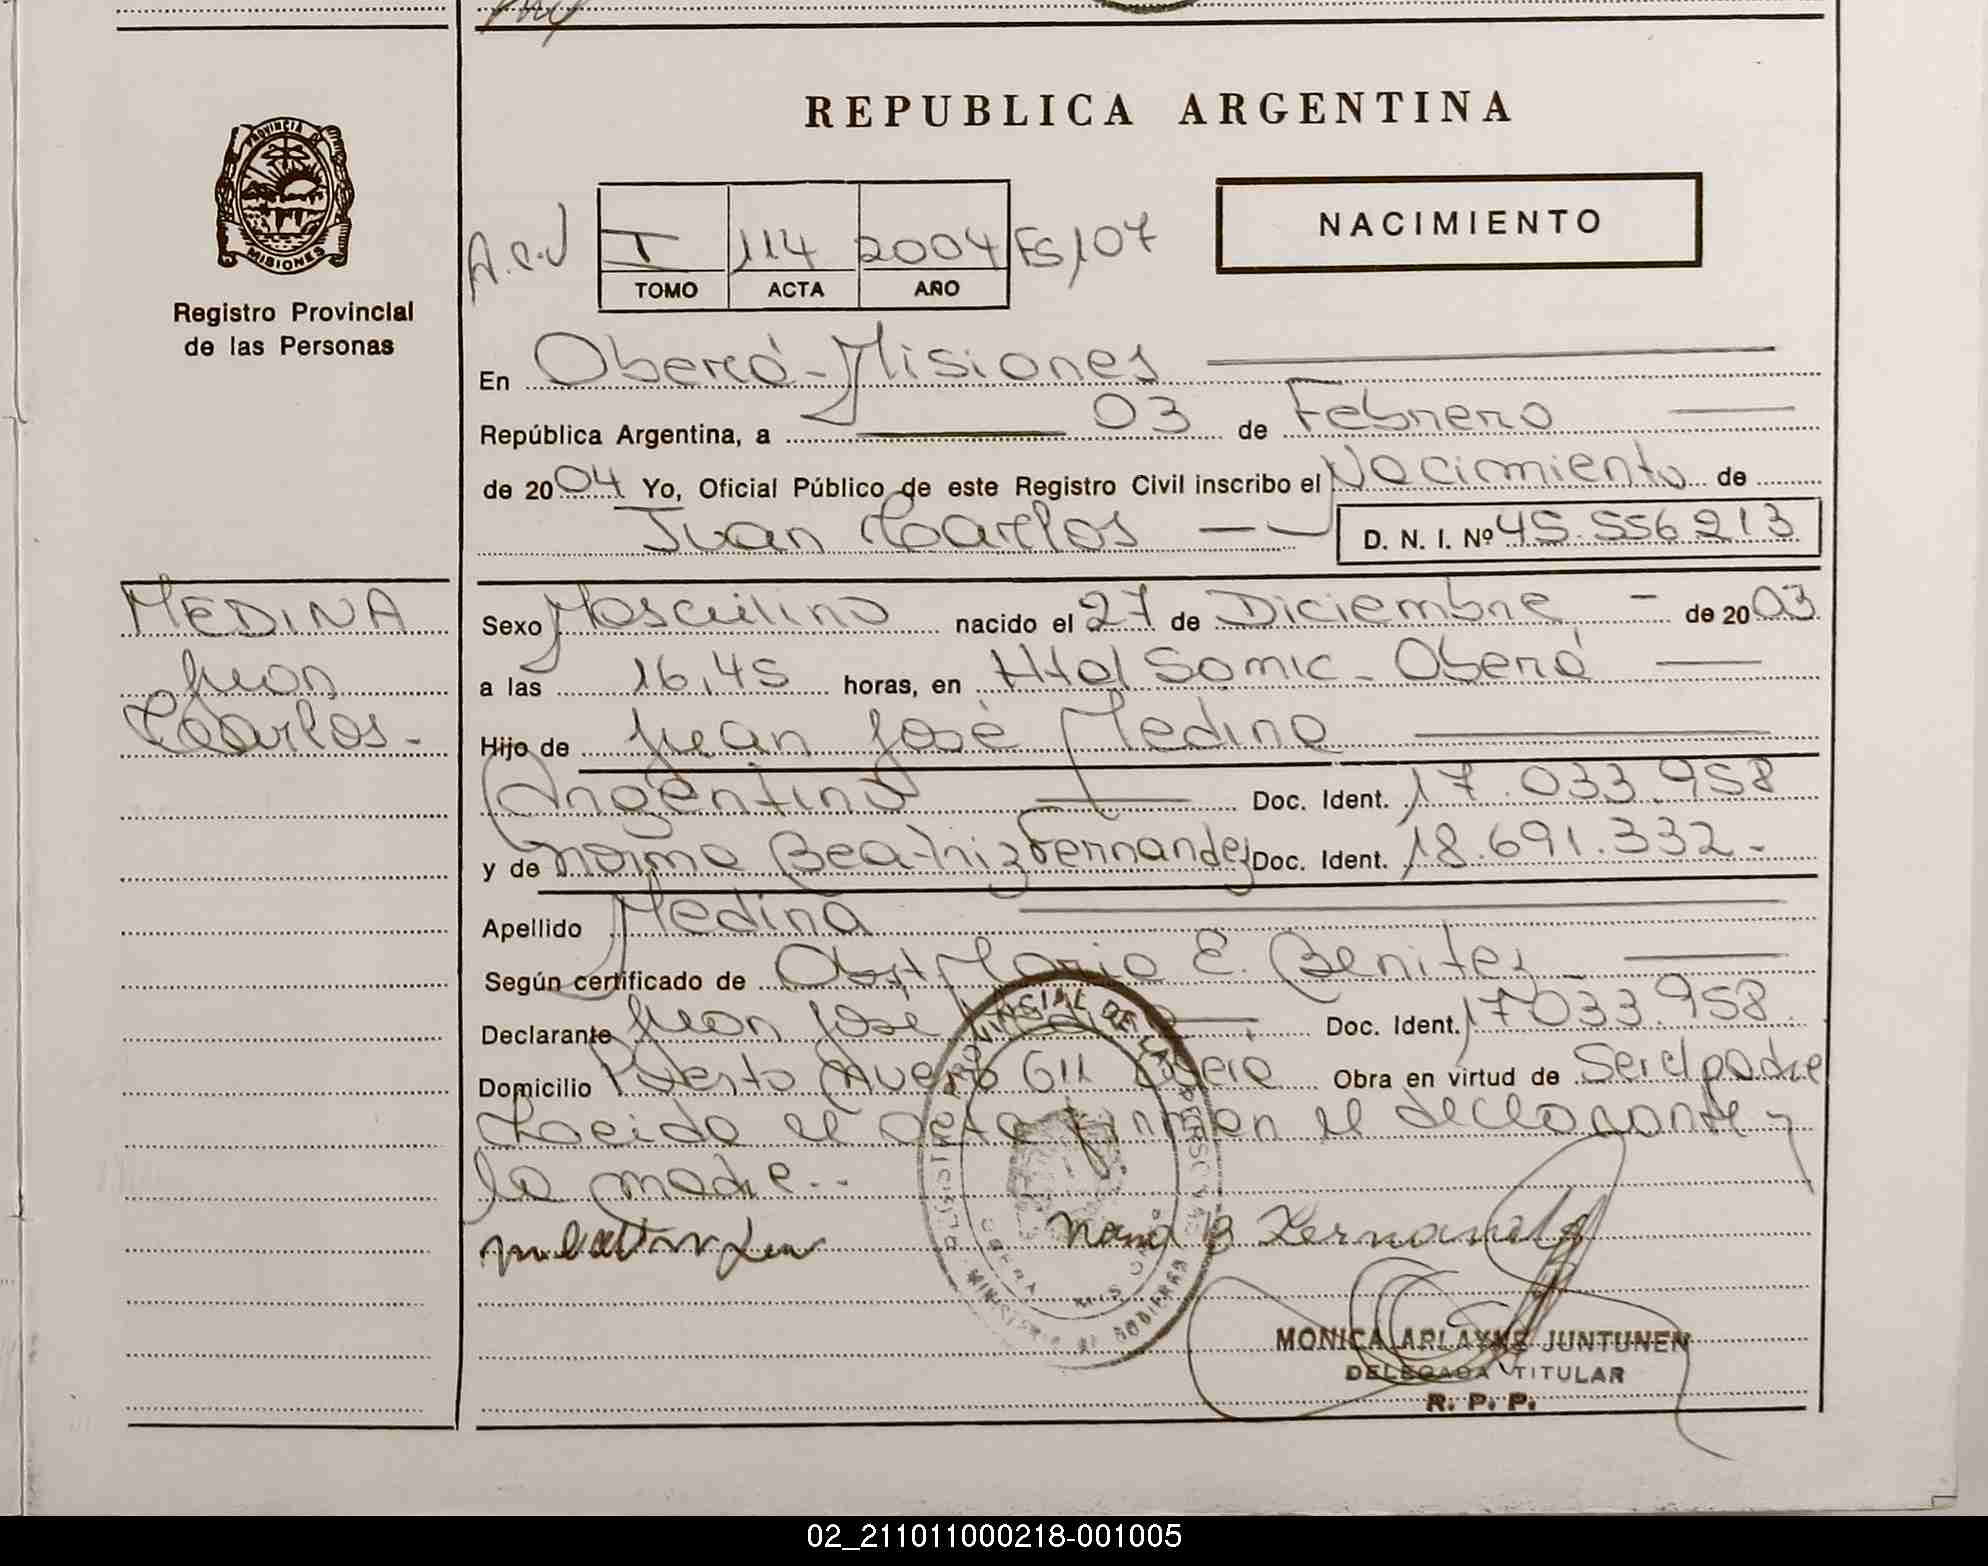 REPUBLICA ARGENTINA
PROVINCIA DE MISIONES
Registro Provincial
de las Personas
NACIMIENTO
I 114 2004
TOMO ACTA AÑO
En Oberá - Misiones
República Argentina, a 03 de Febrero
de 2004 Yo, Oficial Público de este Registro Civil inscribo el Nacimiento de
Juan Carlos D. N. I. Nº 45.556.213
MEDINA
Juan
Carlos.-
Sexo Masculino nacido el 27 de Diciembre de 2003
a las 16,45 horas, en Htal Samic - Oberá
Hijo de Juan José Medina
Argentino Doc. Ident. 17.033.958
y de Norma Beatriz Fernandez Doc. Ident. 18.691.332.-
Apellido Medina
Según certificado de Obst Maria E. Benitez
Declarante Juan José Doc. Ident. 17033.958
Domicilio Puerto Obra en virtud de Ser el padre
el acta firman el y
la madre..
MONICA ARLAYNE JUNTUNEN
DELEGADA TITULAR
R. P. P.
02_211011000218-001005